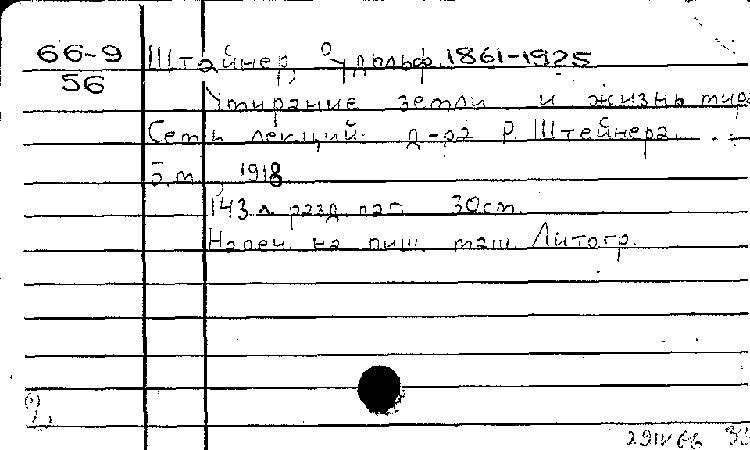 66-9 Штайнер, Рудольф. 1861-1925
56
Умирание земли и жизнь мира
Семь лекций д-ра Р. Штейнера.
Б.м., 1918
143 л. разд. паг. 30 см
Напеч. на пиш. маш. Литогр.
29 IV 66